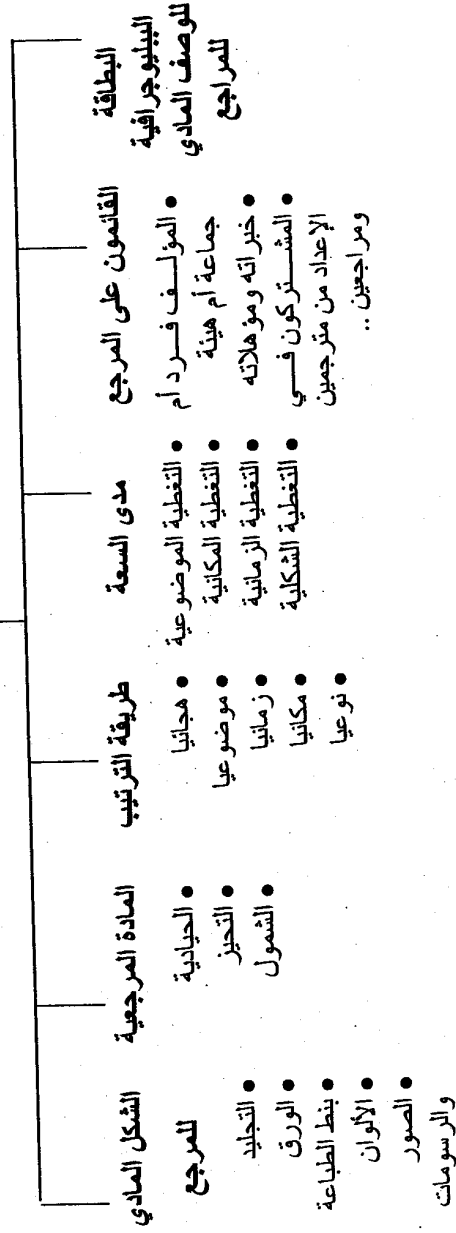 البطاقة
الببليوجرافية
للوصف المادي
للمراجع
القائمون على المرجع
• المؤلف فرد أم
جماعة أم هيئة
• خبراته ومؤهلاته
• المشتركون في
الإعداد من مترجمين
ومراجعين ..
مدى السعة
• التغطية الموضوعية
• التغطية المكانية
• التغطية الزمانية
• التغطية الشكلية
طريقة الترتيب
• هجائيا
• موضوعيا
• زمانيا
• مكانيا
• نوعيا
المادة المرجعية
• الحيادية
• التحيز
• الشمول
الشكل المادي
للمرجع
• التجليد
• الورق
• بنط الطباعة
• الألوان
• الصور
والرسومات